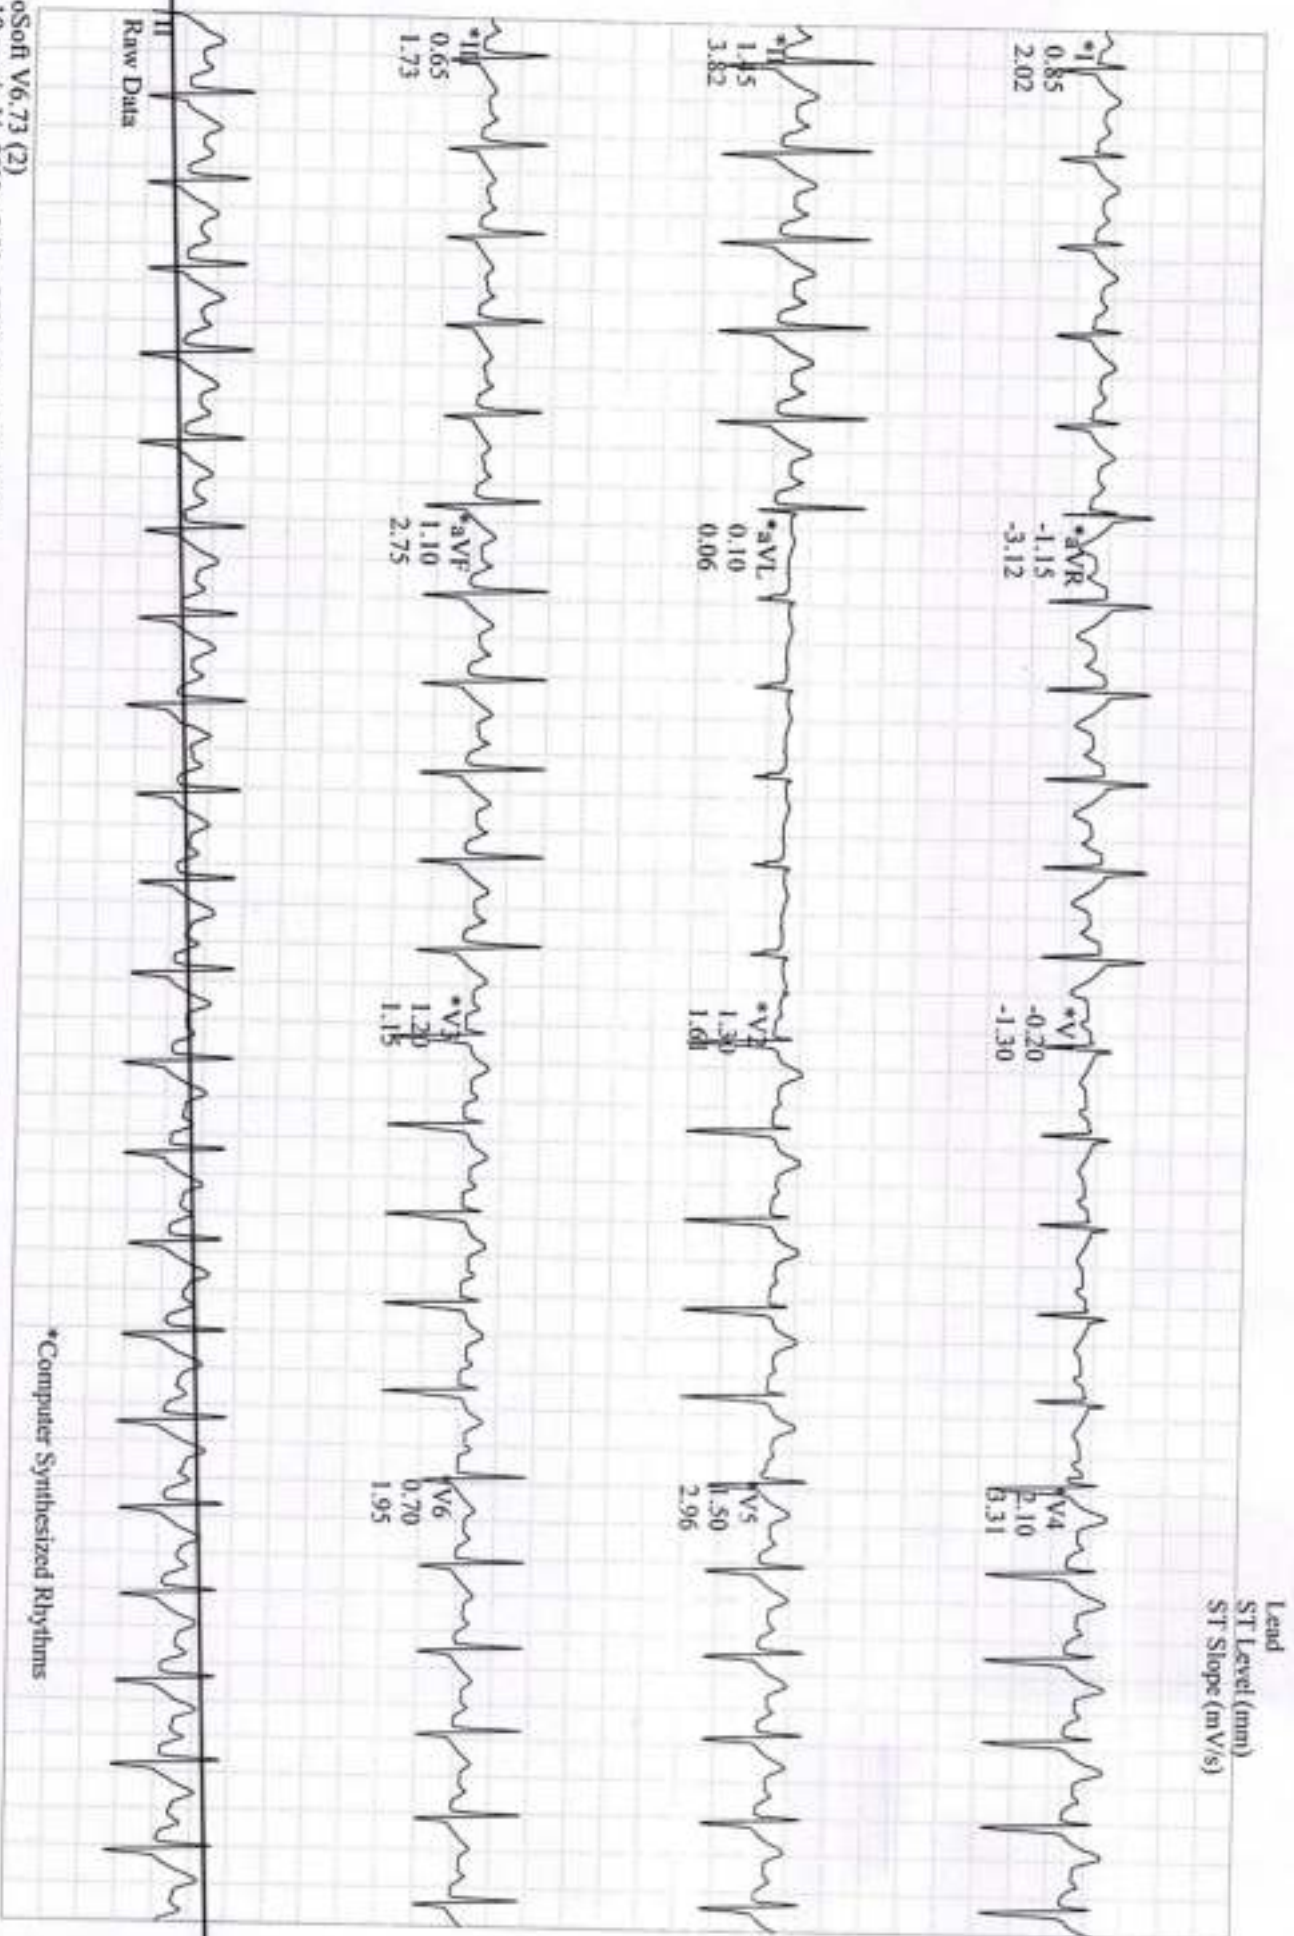 Lead
ST Level (mm)
ST Slope (mV/s)
*I
0.85
2.02
*aVR
-1.15
-3.12
-0.20
-1.30
*V4
2.10
3.31
*II
1.45
3.82
*aVL
0.10
0.06
*V2
1.30
1.61
*V5
1.50
2.96
*III
0.65
1.73
*aVF
1.10
2.75
*V3
1.20
1.15
*V6
0.70
1.95
II
Raw Data
*Computer Synthesized Rhythms
oSoft V6.73 (2)